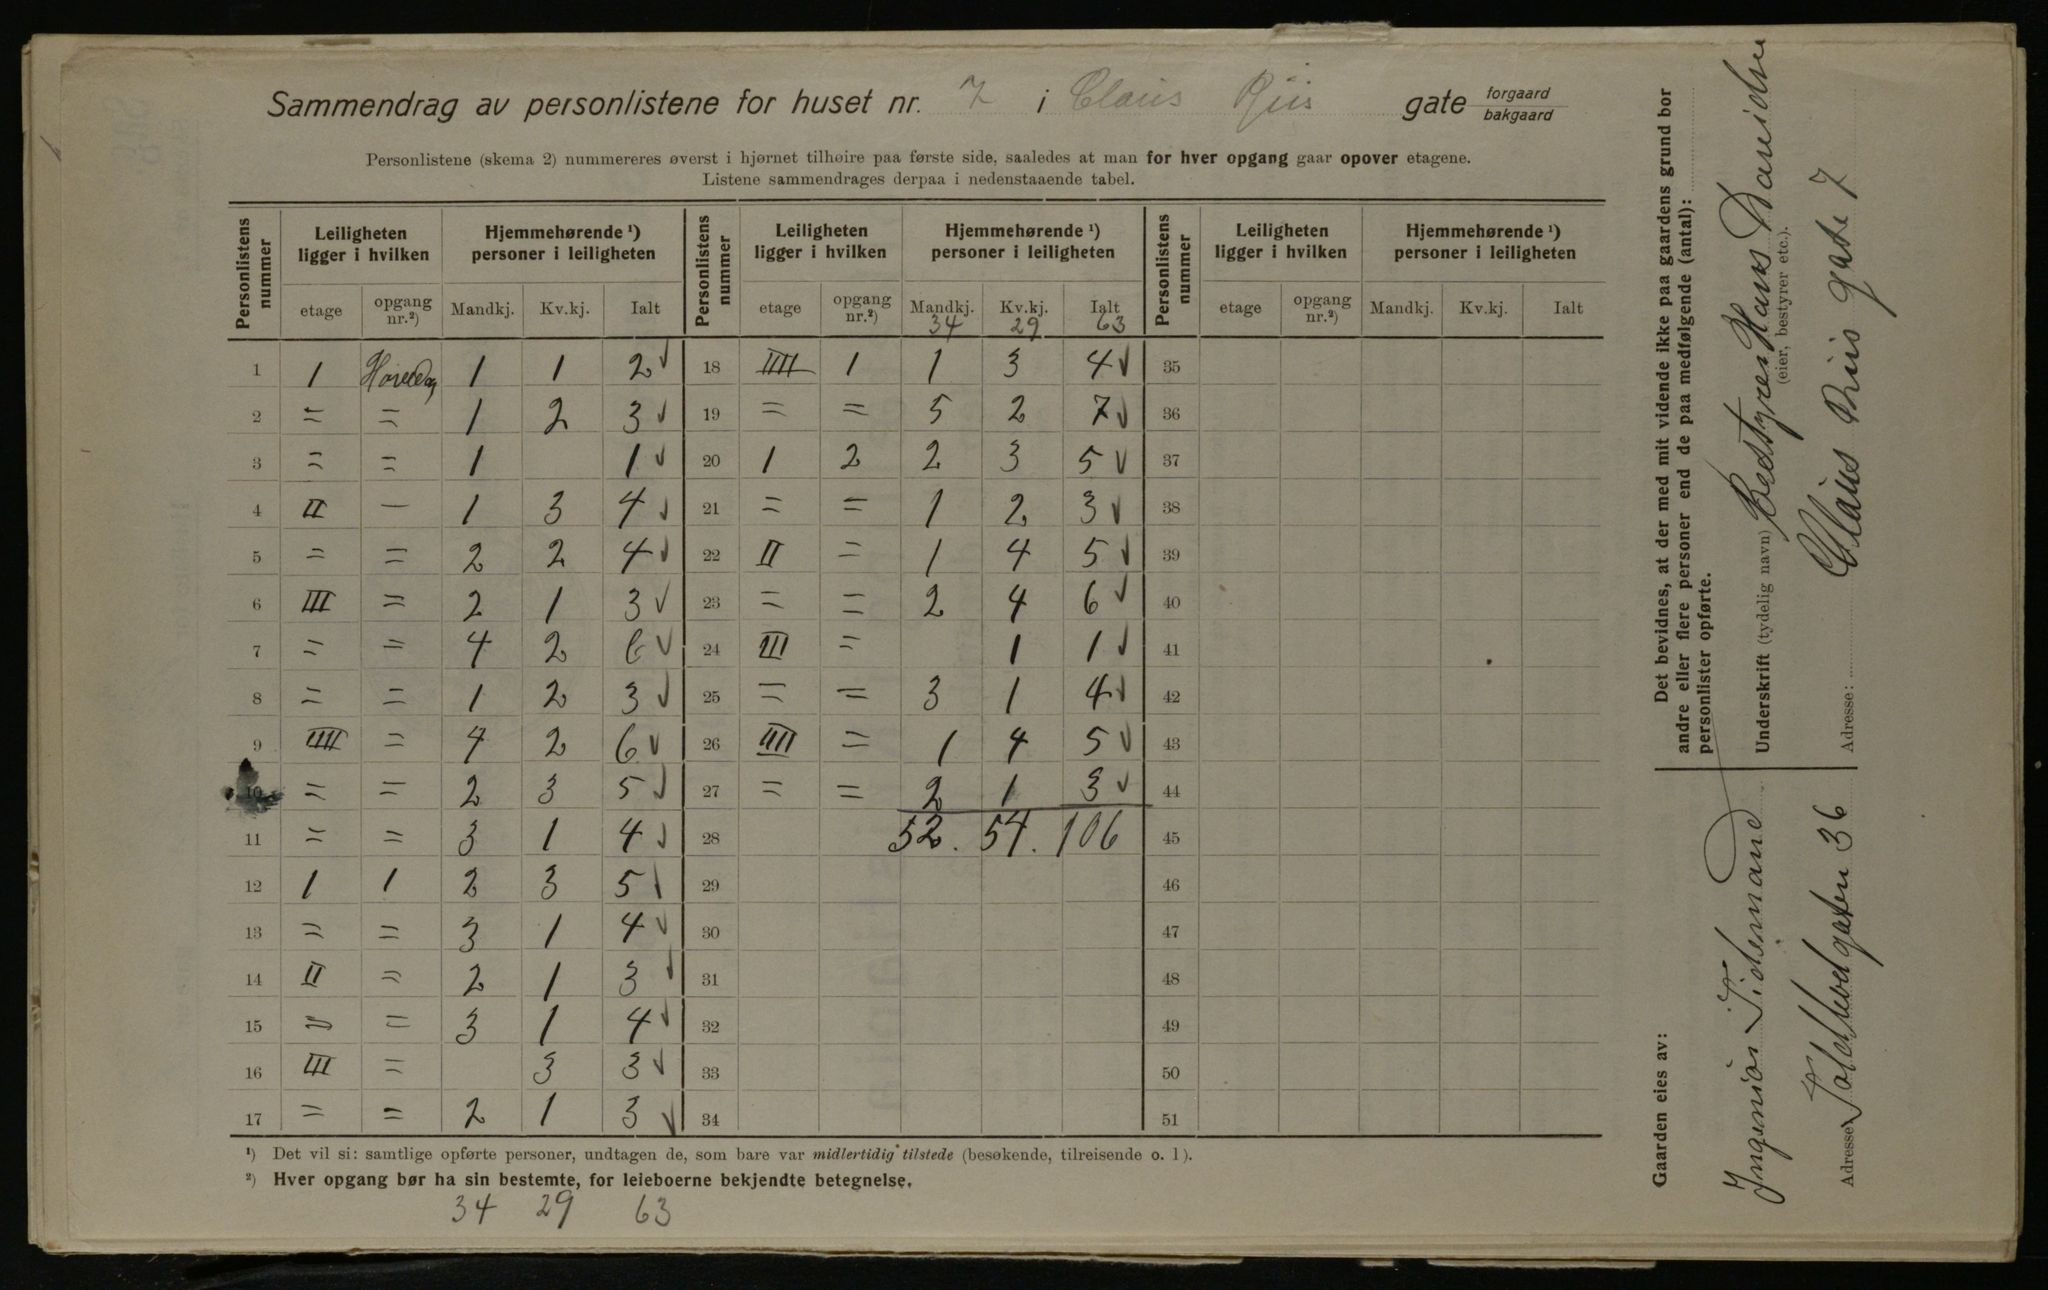 Sammendrag av personlistene for huset nr. 7 i Claus Riis gate forgaard bakgaard
Personlistene (skema 2) nummereres øverst i hjørnet tilhøire paa første side, saaledes at man for hver opgang gaar opover etagene.
Listene sammendrages derpaa i nedenstaaende tabel.
Personlistens nummer | Leiligheten ligger i hvilken | Hjemmehørende ¹) personer i leiligheten | Personlistens nummer | Leiligheten ligger i hvilken | Hjemmehørende ¹) personer i leiligheten | Personlistens nummer | Leiligheten ligger i hvilken | Hjemmehørende ¹) personer i leiligheten
etage | opgang nr.²) | Mandkj. | Kv.kj. | Ialt | etage | opgang nr.²) | Mandkj. | Kv.kj. | Ialt | etage | opgang nr.²) | Mandkj. | Kv.kj. | Ialt
34 29 63
1 | 1 | | 1 | 1 | 2 ✓ | 18 | IIII | 1 | 1 | 3 | 4 ✓ | 35
2 | = | = | 1 | 2 | 3 ✓ | 19 | = | = | 5 | 2 | 7 ✓ | 36
3 | = | = | 1 | | 1 ✓ | 20 | 1 | 2 | 2 | 3 | 5 ✓ | 37
4 | II | — | 1 | 3 | 4 ✓ | 21 | = | = | 1 | 2 | 3 ✓ | 38
5 | = | = | 2 | 2 | 4 ✓ | 22 | II | = | 1 | 4 | 5 ✓ | 39
6 | III | = | 2 | 1 | 3 ✓ | 23 | = | = | 2 | 4 | 6 ✓ | 40
7 | = | = | 4 | 2 | 6 ✓ | 24 | III | = | | 1 | 1 ✓ | 41
8 | = | = | 1 | 2 | 3 ✓ | 25 | = | = | 3 | 1 | 4 ✓ | 42
9 | IIII | = | 4 | 2 | 6 ✓ | 26 | IIII | = | 1 | 4 | 5 ✓ | 43
10 | = | = | 2 | 3 | 5 ✓ | 27 | = | = | 2 | 1 | 3 ✓ | 44
11 | = | = | 3 | 1 | 4 ✓ | 28 | | | 52. | 54. | 106 | 45
12 | 1 | 1 | 2 | 3 | 5 ✓ | 29 | 46
13 | = | = | 3 | 1 | 4 ✓ | 30 | 47
14 | II | = | 2 | 1 | 3 ✓ | 31 | 48
15 | = | = | 3 | 1 | 4 ✓ | 32 | 49
16 | III | = | | 3 | 3 ✓ | 33 | 50
17 | = | = | 2 | 1 | 3 ✓ | 34 | 51
¹) Det vil si: samtlige opførte personer, undtagen de, som bare var midlertidig tilstede (besøkende, tilreisende o. l).
²) Hver opgang bør ha sin bestemte, for leieboerne bekjendte betegnelse.
34 29 63
Det bevidnes, at der med mit vidende ikke paa gaardens grund bor
andre eller flere personer end de paa medfølgende (antal):
personlister opførte.
Underskrift (tydelig navn) Bestyrer Hans Danielsen
(eier, bestyrer etc.).
Adresse: Claus Riis gade 7
Gaarden eies av:
Ingeniør Tidemand
Adresse Toldbodgaten 36